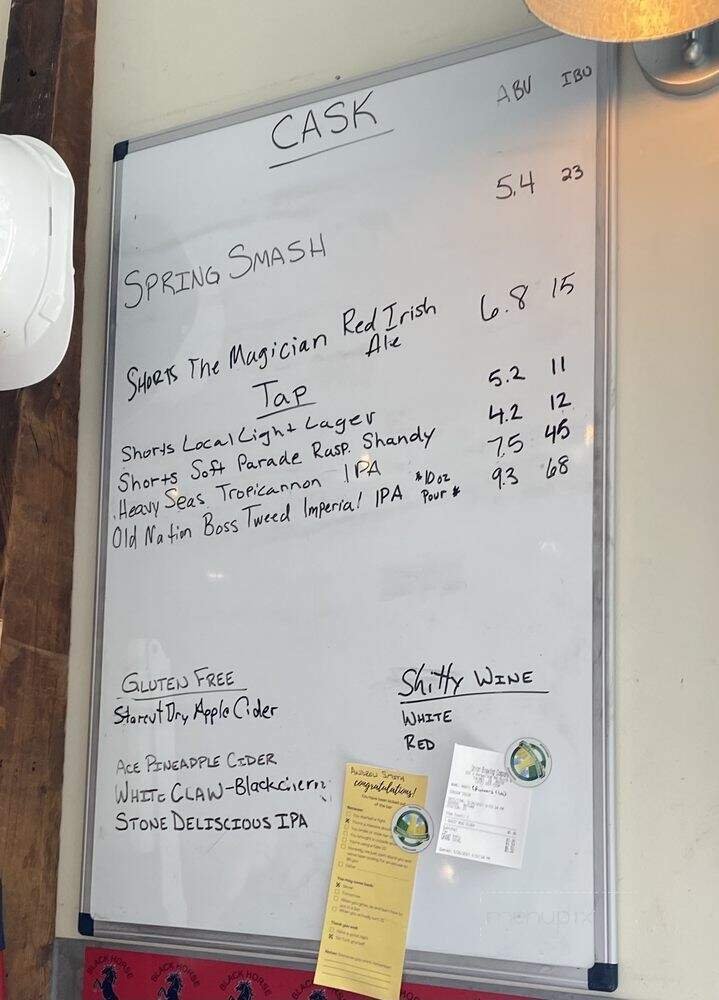 CASK ABV IBU
SPRING SMASH 5.4 23
SHORTS THE MAGICIAN Red Irish Ale 6.8 15
TAP
Shorts Local Light Lager 5.2 11
Shorts Soft Parade Rasp. Shandy 4.2 12
Heavy Seas Tropicannon IPA 7.5 45
Old Nation Boss Tweed Imperial IPA *10oz Pour* 9.3 68
GLUTEN FREE
Starcut Dry Apple Cider
ACE PINEAPPLE CIDER
WHITE CLAW-Blackcherry
STONE DELISCIOUS IPA
Shitty WINE
WHITE
RED
ANDREW SMITH
congratulations!
You have been kicked out of the bar
BLACK HORSE
BLACK HORSE
BLACK HORSE
BLACK HORSE
menupix